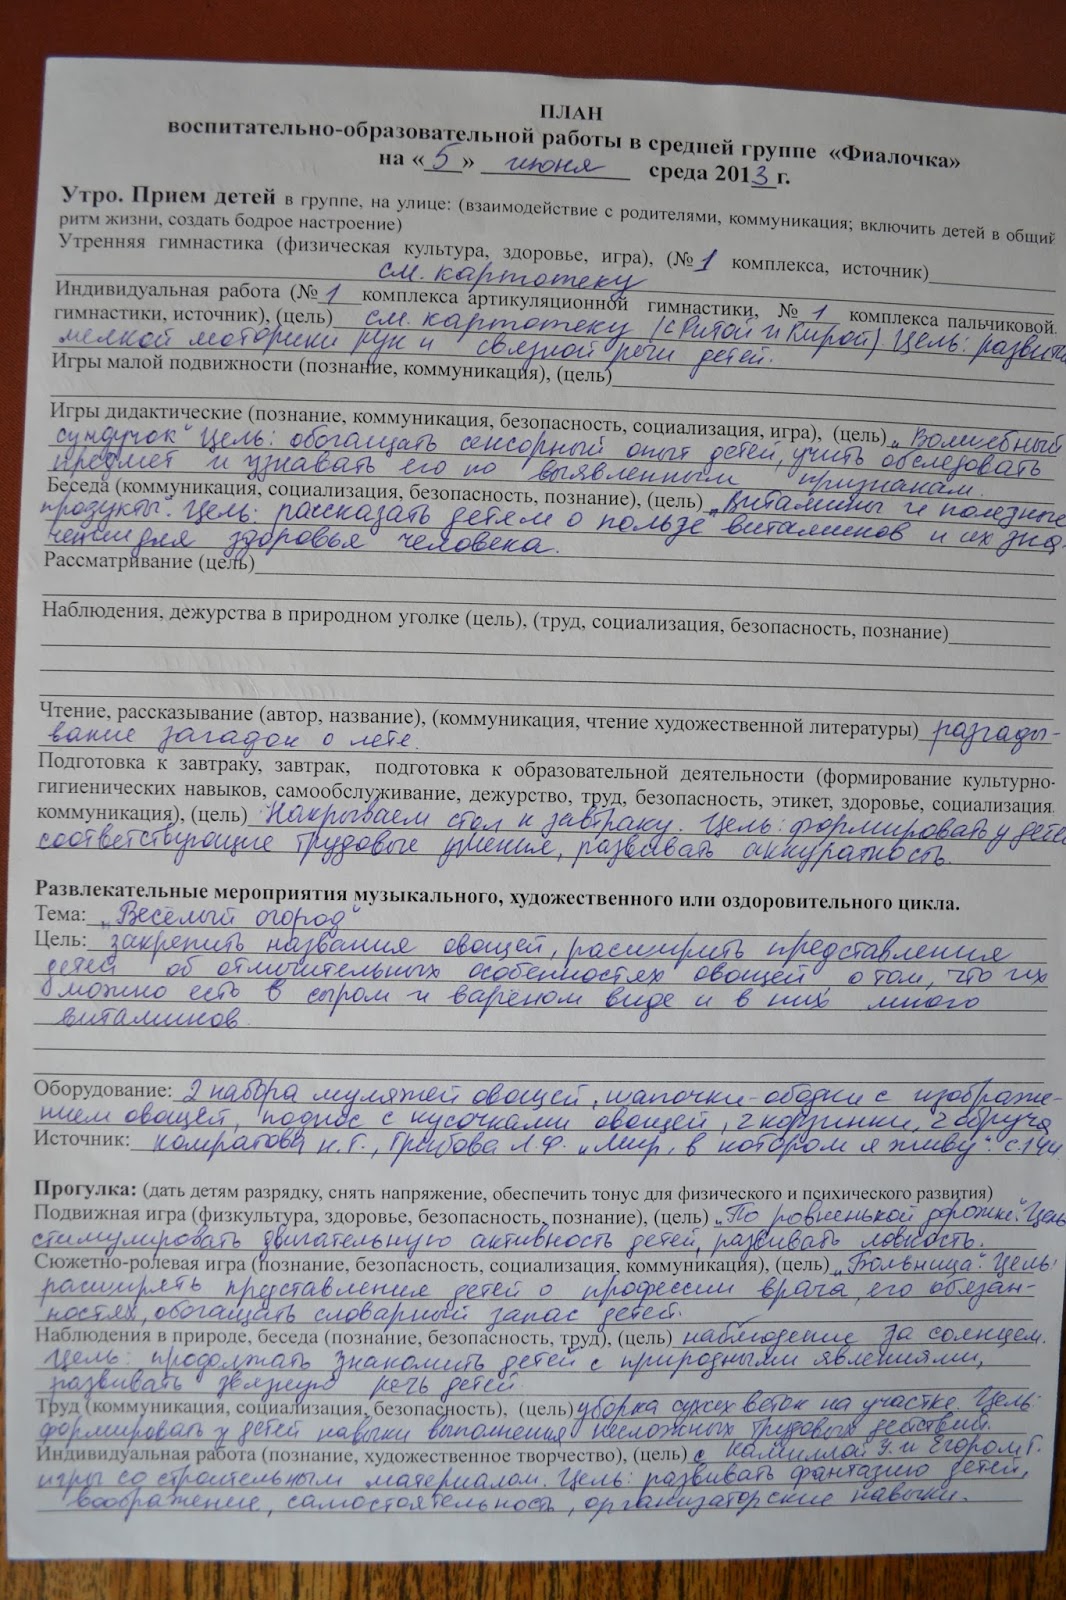 ПЛАН
воспитательно-образовательной работы в средней группе «Фиалочка»
на «5» июня среда 2013 г.
Утро. Прием детей в группе, на улице: (взаимодействие с родителями, коммуникация; включить детей в общий
ритм жизни, создать бодрое настроение)
Утренняя гимнастика (физическая культура, здоровье, игра), (№ 1 комплекса, источник)
см. картотеку
Индивидуальная работа (№ 1 комплекса артикуляционной гимнастики, № 1 комплекса пальчиковой
гимнастики, источник), (цель) см. картотеку (с Ритой и Кирой). Цель: развити
мелкой моторики рук и связной речи детей.
Игры малой подвижности (познание, коммуникация), (цель)
Игры дидактические (познание, коммуникация, безопасность, социализация, игра), (цель) „Волшебный
сундучок“ Цель: обогащать сенсорный опыт детей, учить обследовать
предмет и узнавать его по выявленным признакам.
Беседа (коммуникация, социализация, безопасность, познание), (цель) „Витамины и полезные
продукты“. Цель: рассказать детям о пользе витаминов и их зна-
чении для здоровья человека.
Рассматривание (цель)
Наблюдения, дежурства в природном уголке (цель), (труд, социализация, безопасность, познание)
Чтение, рассказывание (автор, название), (коммуникация, чтение художественной литературы) разгады-
вание загадок о лете.
Подготовка к завтраку, завтрак, подготовка к образовательной деятельности (формирование культурно-
гигиенических навыков, самообслуживание, дежурство, труд, безопасность, этикет, здоровье, социализация.
коммуникация), (цель) Накрываем стол к завтраку. Цель: формировать у дете
соответствующие трудовые умения, развивать аккуратность.
Развлекательные мероприятия музыкального, художественного или оздоровительного цикла.
Тема: „Весёлый огород“
Цель: закрепить названия овощей, расширить представления
детей об отличительных особенностях овощей, о том, что их
можно есть в сыром и варёном виде и в них много
витаминов.
Оборудование: 2 набора муляжей овощей, шапочки-ободки с изображе-
нием овощей, поднос с кусочками овощей, 2 корзинки, 2 обруча
Источник: Комратова Н.Г., Грибова Л.Ф. „Мир, в котором я живу“. с.144
Прогулка: (дать детям разрядку, снять напряжение, обеспечить тонус для физического и психического развития)
Подвижная игра (физкультура, здоровье, безопасность, познание), (цель) „По ровненькой дорожке“. Цель
стимулировать двигательную активность детей, развивать ловкость.
Сюжетно-ролевая игра (познание, безопасность, социализация, коммуникация), (цель) „Больница“. Цель:
расширять представления детей о профессии врача, его обязан-
ностях, обогащать словарный запас детей.
Наблюдения в природе, беседа (познание, безопасность, труд), (цель) наблюдение за солнцем.
Цель: продолжать знакомить детей с природными явлениями,
развивать связную речь детей.
Труд (коммуникация, социализация, безопасность), (цель) уборка сухих веток на участке. Цель:
формировать у детей навыки выполнения несложных трудовых действий.
Индивидуальная работа (познание, художественное творчество), (цель) с Камиллой У. и Егором Г.
игры со строительным материалом. Цель: развивать фантазию детей,
воображение, самостоятельность, организаторские навыки.